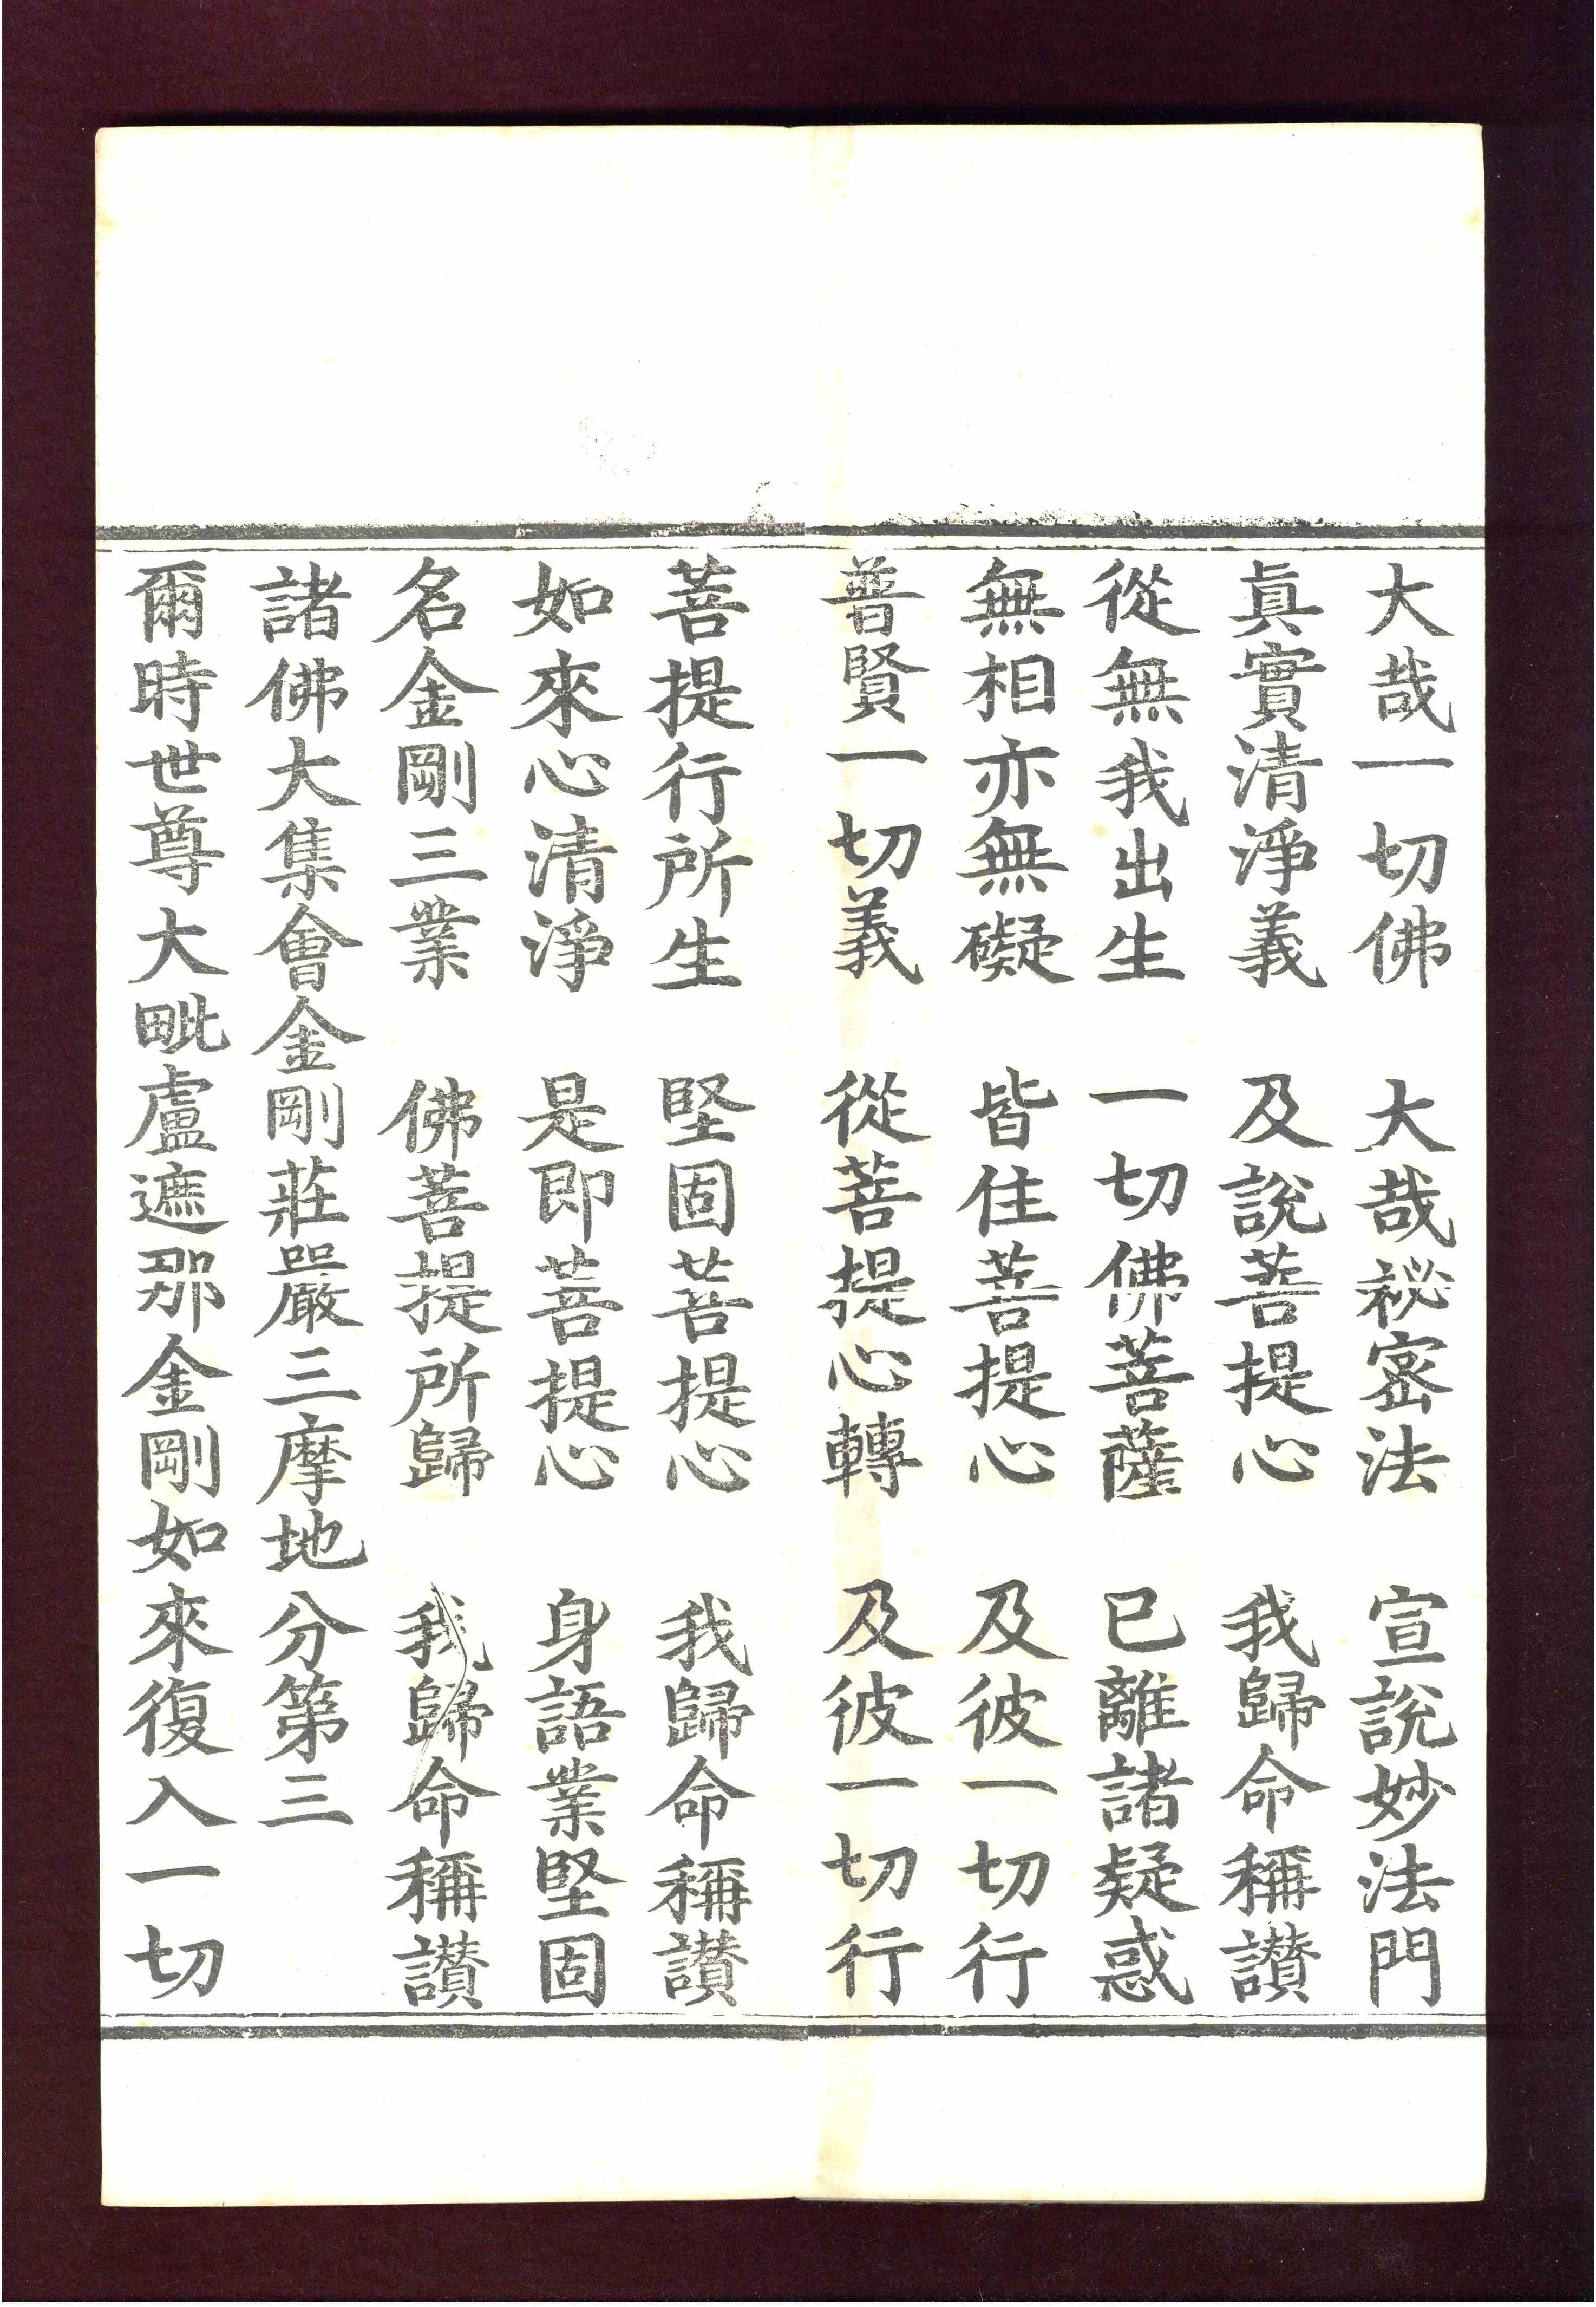 大哉一切佛　大哉祕密法　宣說妙法門
眞實清淨義　及說菩提心　我歸命稱讃
從無我出生　一切佛菩薩　已離諸疑惑
無相亦無礙　皆住菩提心　及彼一切行
普賢一切義　從菩提心轉　及彼一切行
菩提行所生　堅固菩提心　我歸命稱讃
如來心清淨　是即菩提心　身語業堅固
名金剛三業　佛菩提所歸　我歸命稱讃
諸佛大集會金剛莊嚴三摩地分第三
爾時世尊大毗盧遮那金剛如來復入一切